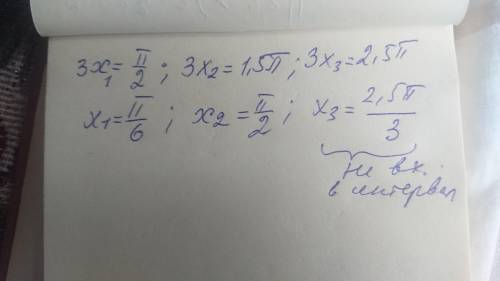 3x₁ = π/2 ; 3x₂ = 1,5π ; 3x₃ = 2,5π
x₁ = π/6 ; x₂ = π/2 ; x₃ = 2,5π/3
не вх.
в интервал